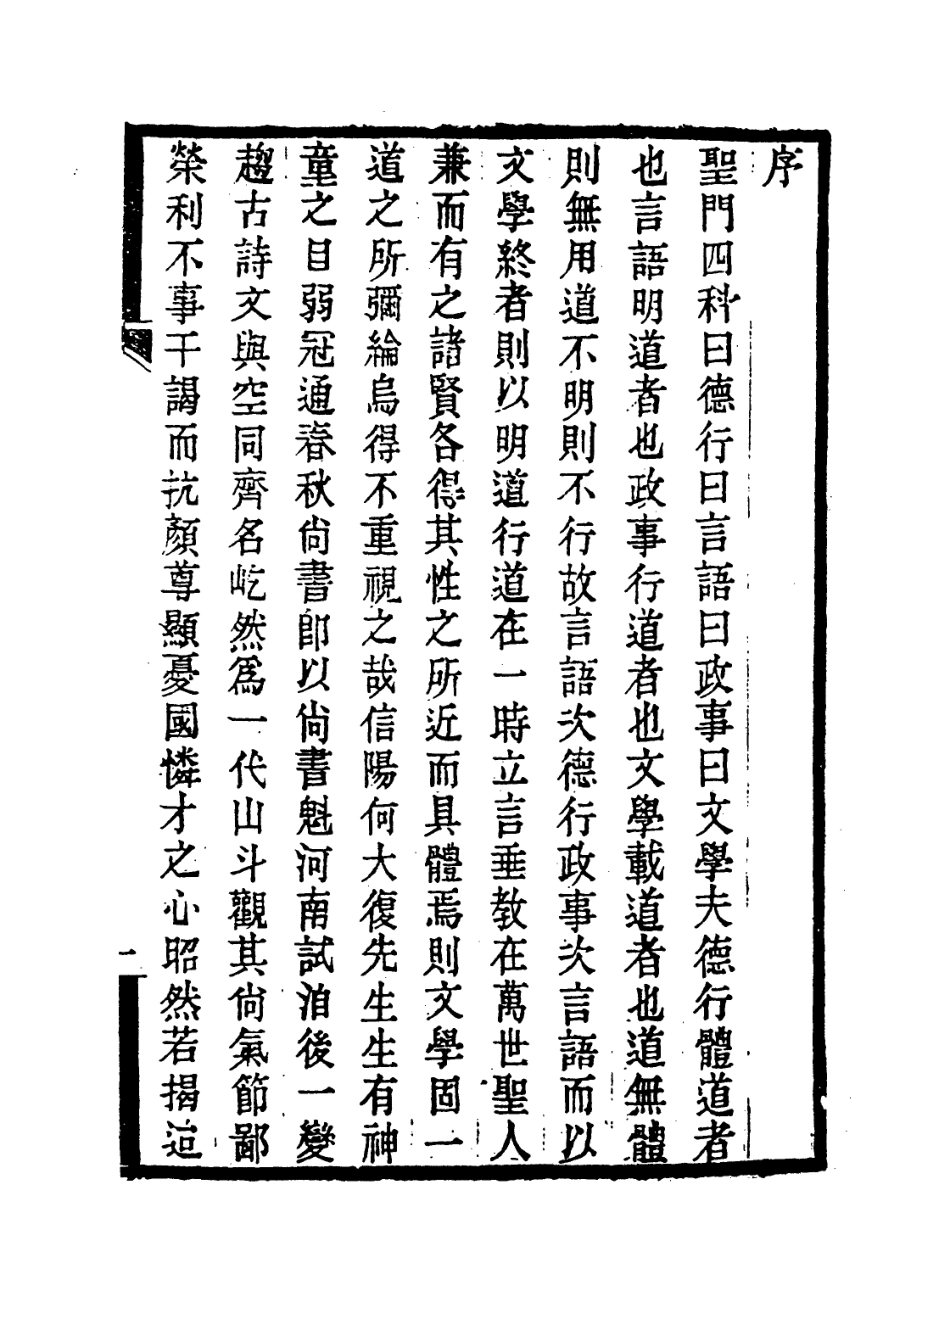 序
聖門四科曰德行曰言語曰政事曰文學夫德行體道者
也言語明道者也政事行道者也文學載道者也道無體
則無用道不明則不行故言語次德行政事次言語而以
文學終者則以明道行道在一時立言垂教在萬世聖人
兼而有之諸賢各得其性之所近而具體焉則文學固一
道之所彌綸烏得不重視之哉信陽何大復先生生有神
童之目弱冠通春秋尙書卽以尙書魁河南試洎後一變
趨古詩文與空同齊名屹然爲一代山斗觀其尙氣節鄙
榮利不事干謁而抗顏尊顯憂國憐才之心昭然若揭迨
一